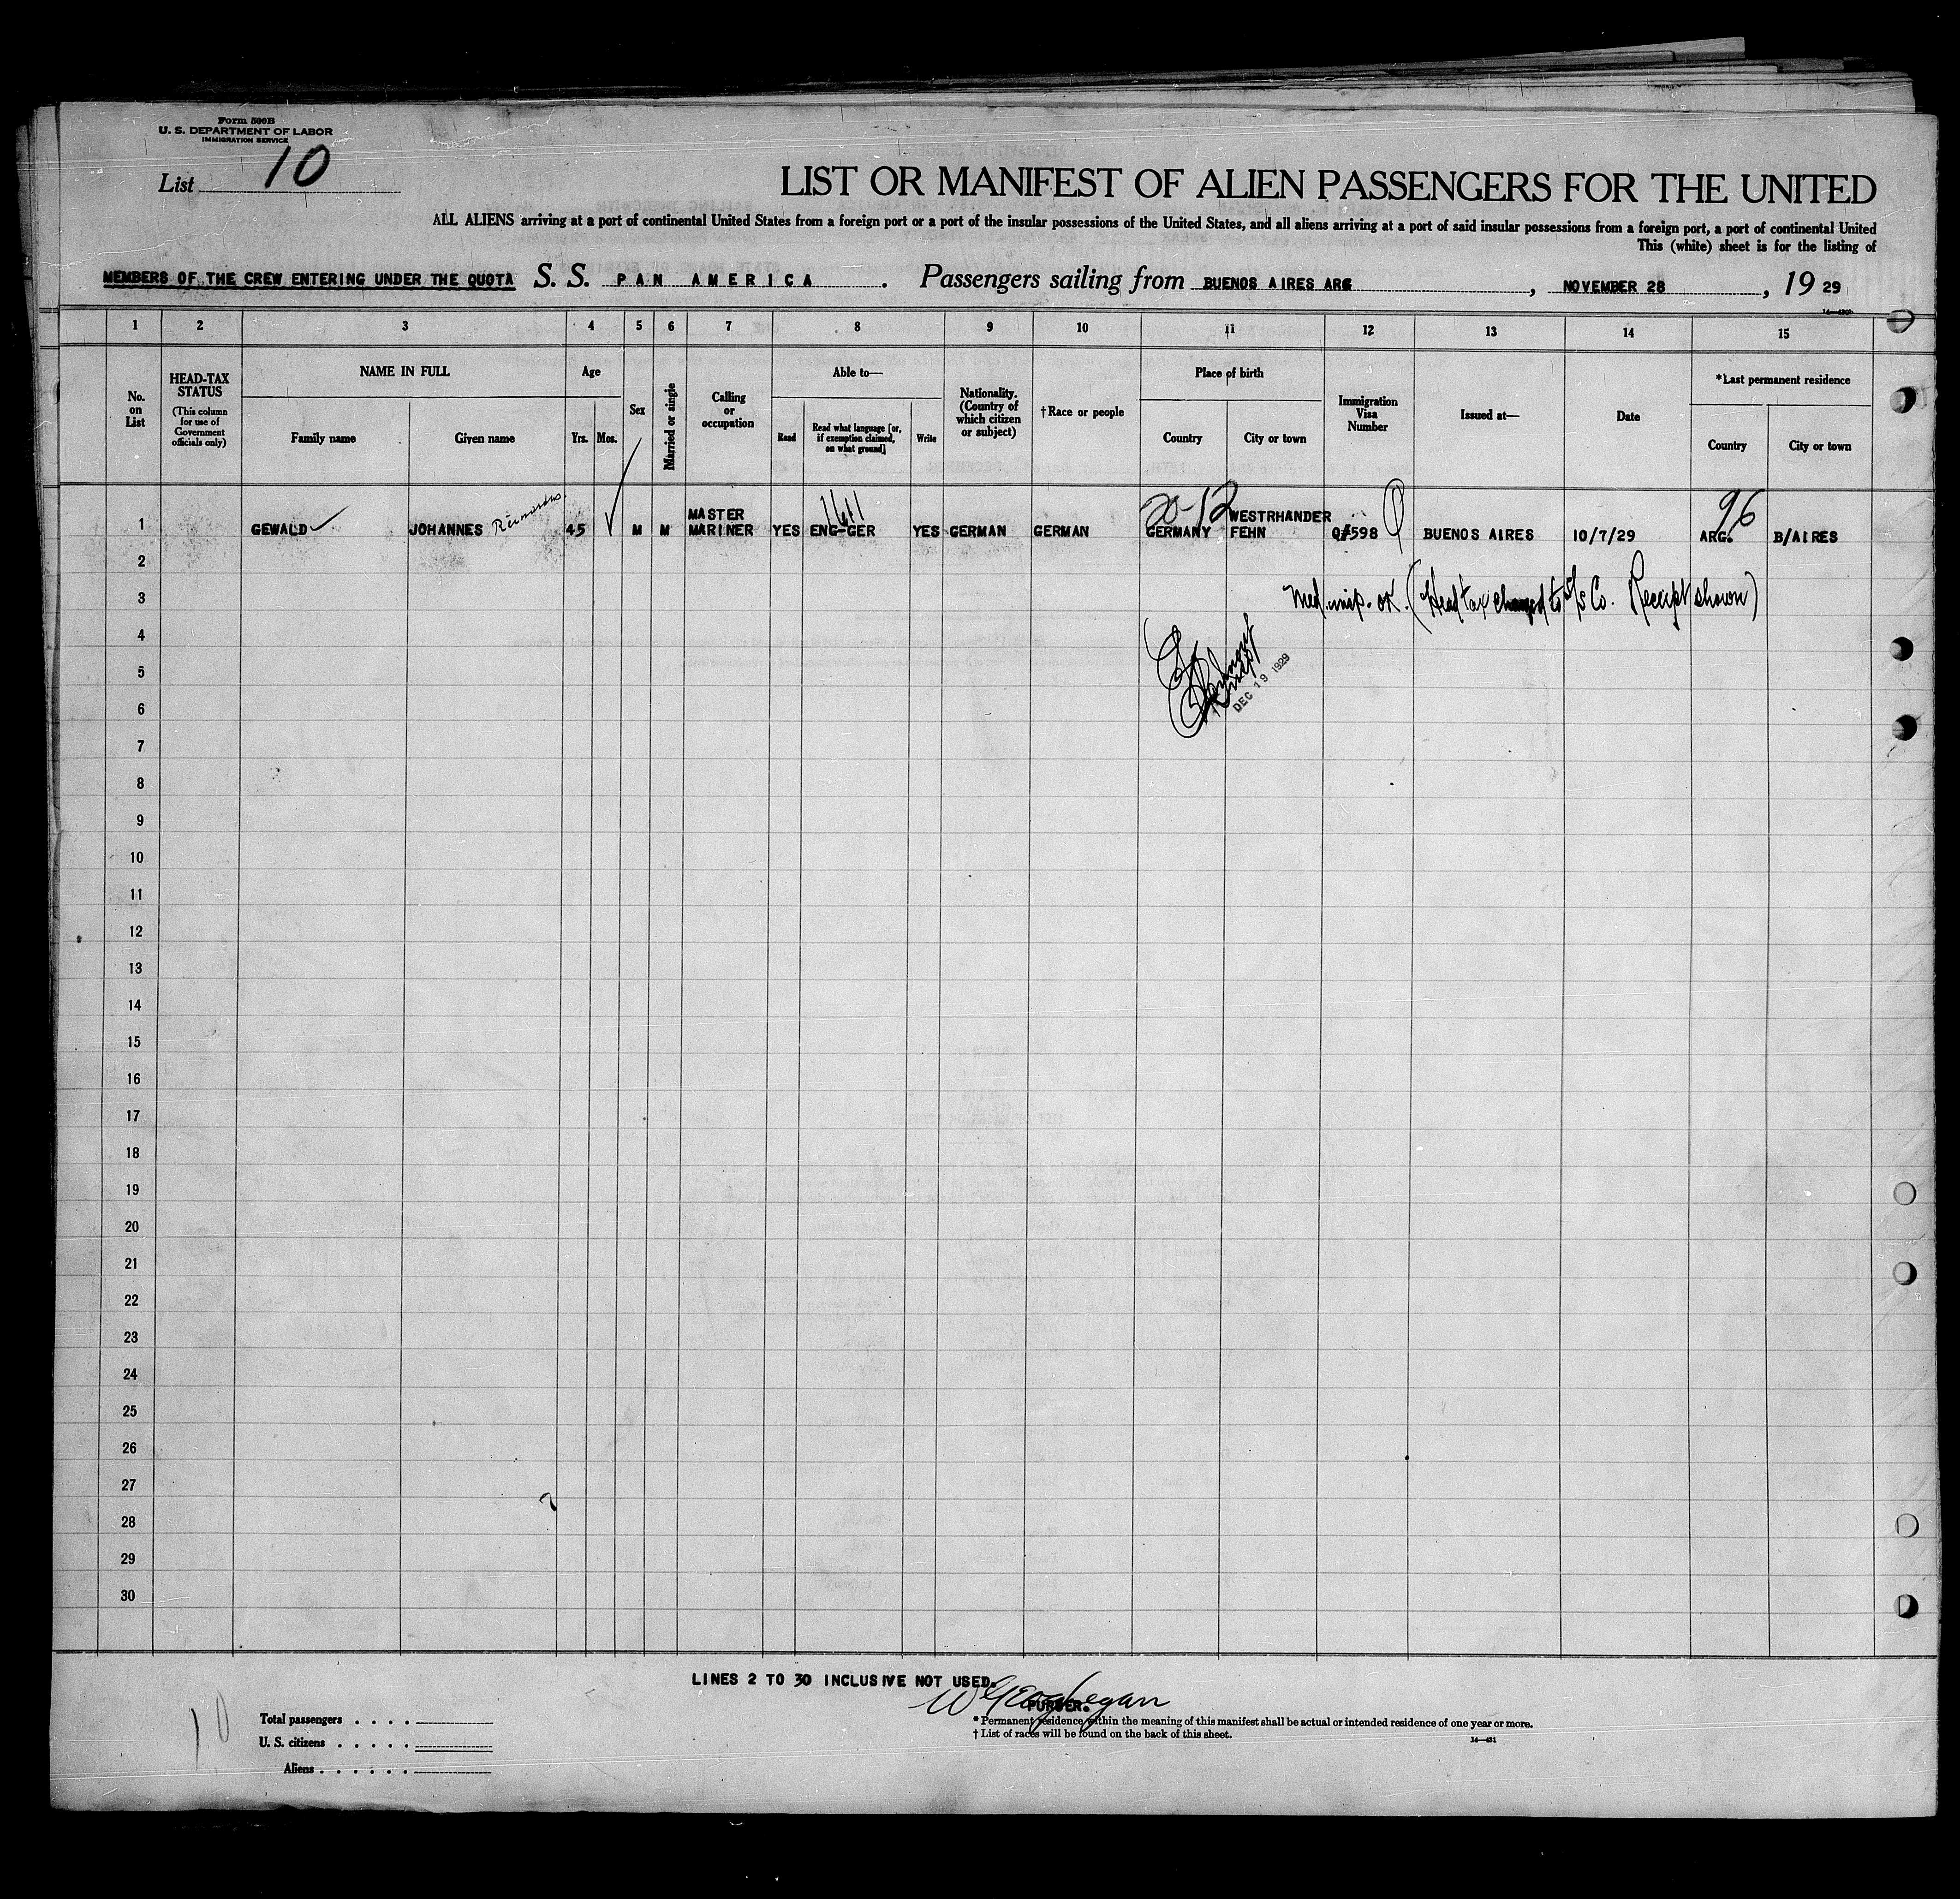 Form 500B
U. S. DEPARTMENT OF LABOR
IMMIGRATION SERVICE
List 10
LIST OR MANIFEST OF ALIEN PASSENGERS FOR THE UNITED
ALL ALIENS arriving at a port of continental United States from a foreign port or a port of the insular possessions of the United States, and all aliens arriving at a port of said insular possessions from a foreign port, a port of continental United
This (white) sheet is for the listing of
MEMBERS OF THE CREW ENTERING UNDER THE QUOTA S. S. PAN AMERICA. Passengers sailing from BUENOS AIRES ARG, NOVEMBER 28, 19 29
1 2 3 4 5 6 7 8 9 10 11 12 13 14 15
No. on List
HEAD-TAX STATUS
(This column for use of Government officials only)
NAME IN FULL
Family name
Given name
Age
Yrs.
Mos.
Sex
Married or single
Calling or occupation
Able to—
Read
Read what language [or, if exemption claimed, on what ground]
Write
Nationality. (Country of which citizen or subject)
†Race or people
Place of birth
Country
City or town
Immigration Visa Number
Issued at—
Date
*Last permanent residence
Country
City or town
20-12
96
1 GEWALD JOHANNES 45 M M MASTER MARINER YES ENG-GER YES GERMAN GERMAN GERMANY WESTRHANDER FEHN Q#598 BUENOS AIRES 10/7/29 ARG. B/AIRES
2
3 Med. insp. OK. (Head tax charged to S/S Co. Receipt shown)
4
5
DEC 19 1929
6
7
8
9
10
11
12
13
14
15
16
17
18
19
20
21
22
23
24
25
26
27
28
29
30
LINES 2 TO 30 INCLUSIVE NOT USED.
W Geoghegan
PURSER.
Total passengers . . . .
U. S. citizens . . . . .
Aliens . . . . . .
* Permanent residence within the meaning of this manifest shall be actual or intended residence of one year or more.
† List of races will be found on the back of this sheet.
14—431
10